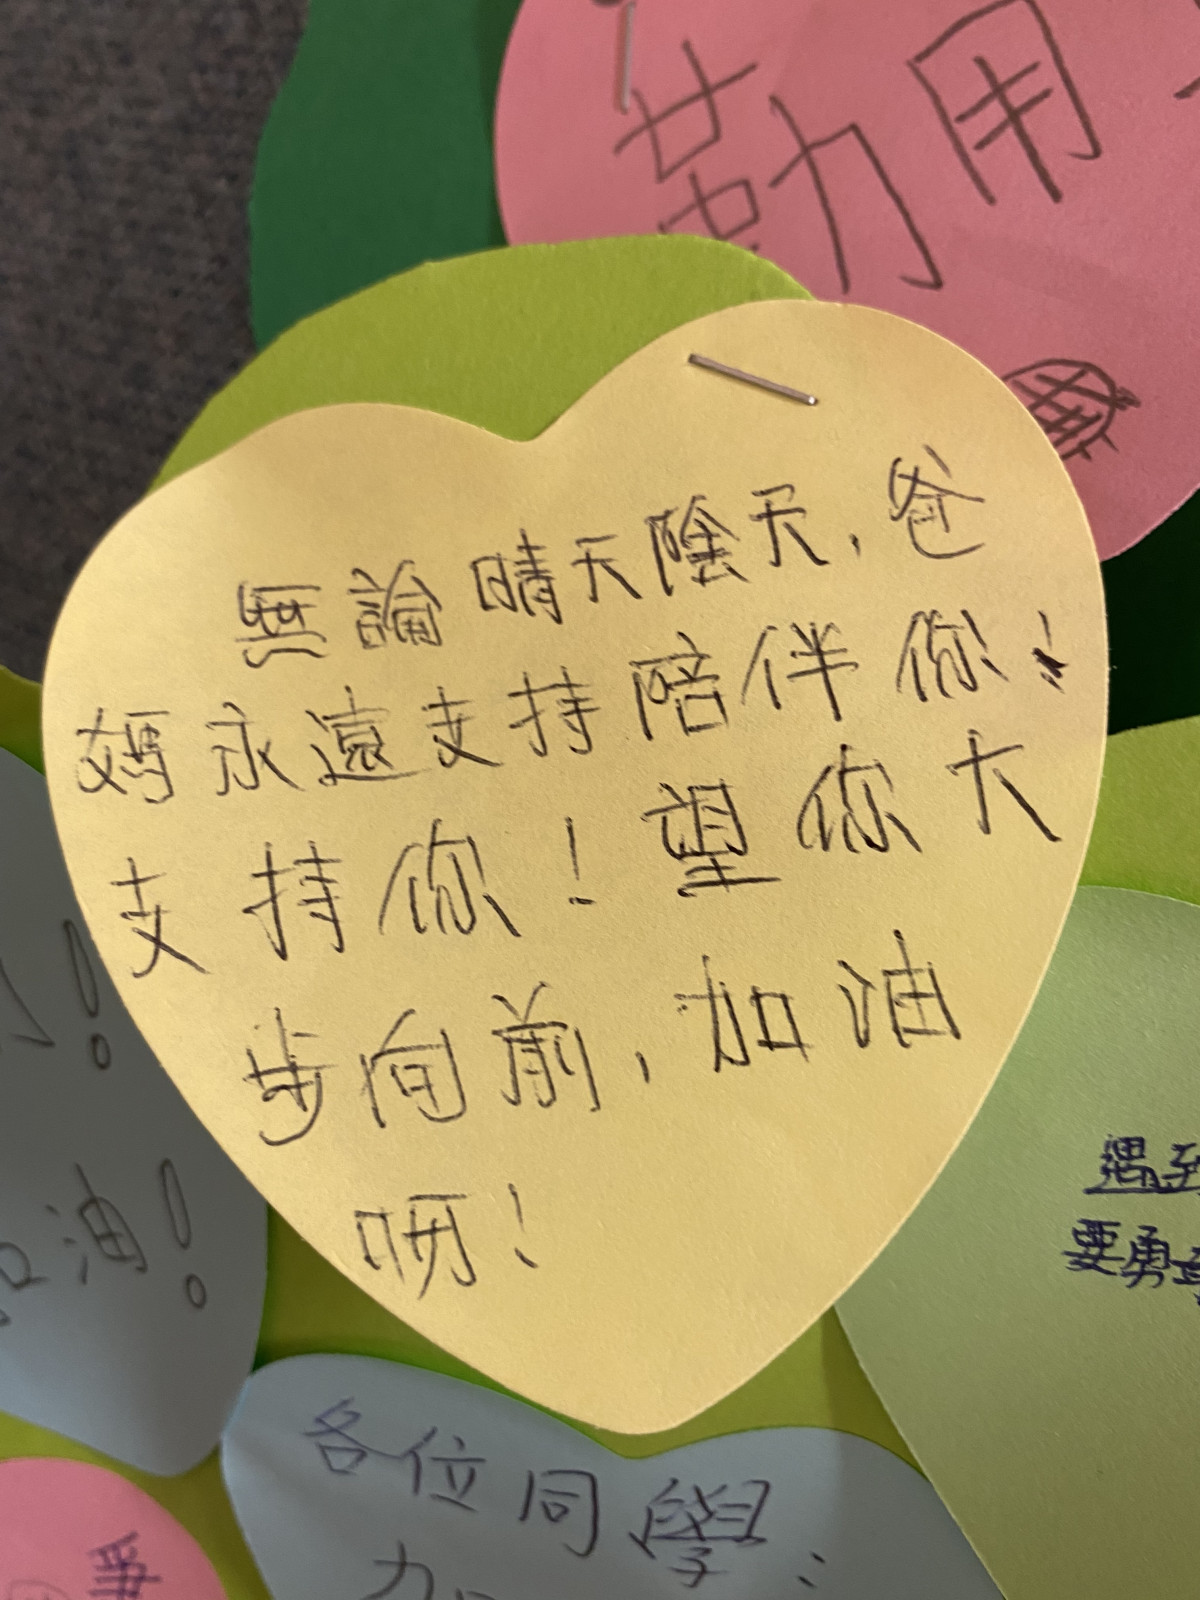 勤用
無論晴天陰天，爸
媽永遠支持陪伴你！
支持你！望你大
步向前，加油
呀！
！
油！
遇到
要勇
各位同學：
加